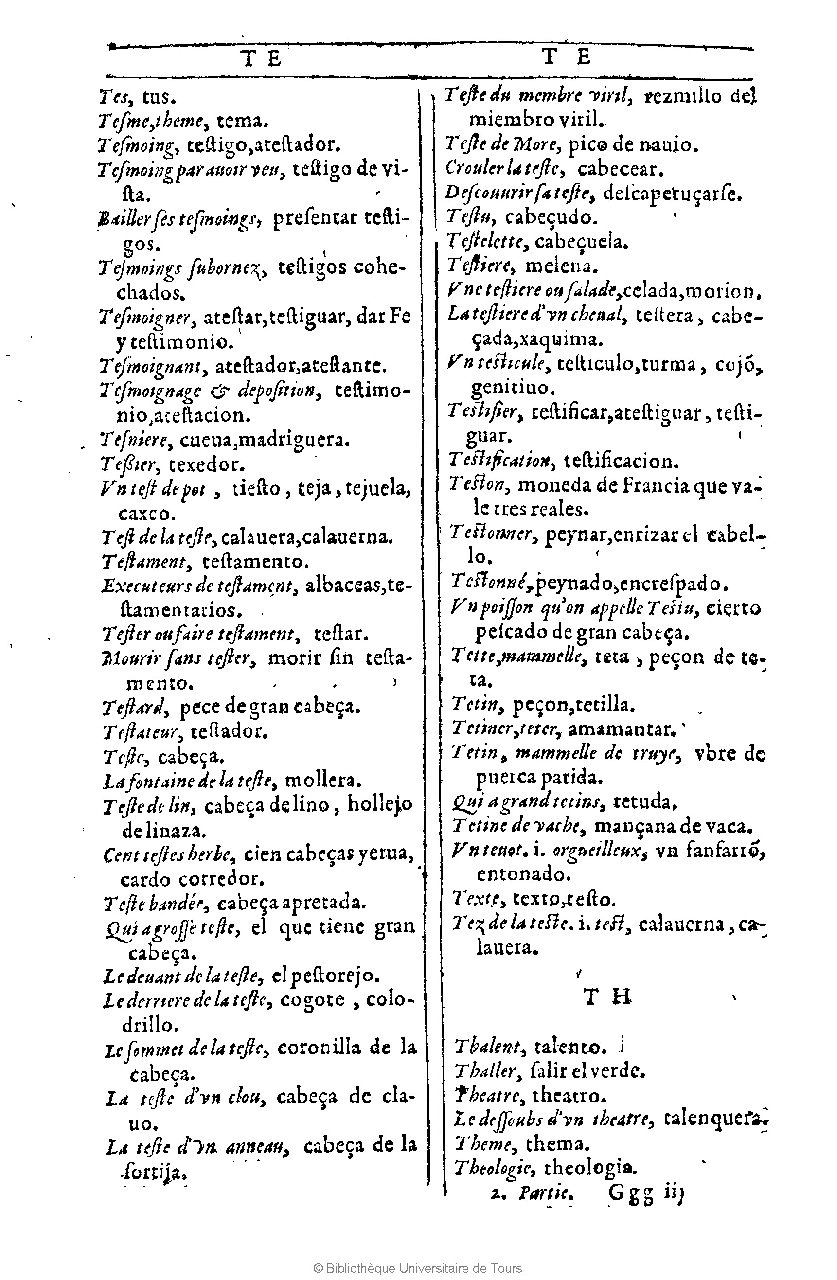 T E
T E
Tes, tus.
Tesme,theme, tema.
Tesmoing, testigo,atestador.
Tesmoing par auoir veu, testigo de vi-
sta.
Bailler ses tesmoings, presentar testi-
gos.
Tesmoings subornez, testigos cohe-
chados.
Tesmoigner, atestar,testiguar, dar Fe
y testimonio.
Tesmoignant, atestador,atestante.
Tesmoignage & deposition, testimo-
nio,atestacion.
Tesniere, cueua,madriguera.
Teßier, texedor.
Vn test de pot , tiesto , teja , tejuela,
caxco.
Test de la teste, calauera,calauerna.
Testament, testamento.
Executeurs de testament, albaceas,te-
stamentarios.
Tester ou faire testament, testar.
Mourir sans tester, morir sin testa-
mento.
Testard, pece de gran cabeça.
Testateur, testador.
Teste, cabeça.
La fontaine de la teste, mollera.
Teste de lin, cabeça de lino , hollejo
de linaza.
Cent testes herbe, cien cabeças yerua,
cardo corredor.
Teste bandée, cabeça apretada.
Qui a grosse teste, el que tiene gran
cabeça.
Le deuant de la teste, el pestorejo.
Le derriere de la teste, cogote , colo-
drillo.
Le sommet de la teste, coronilla de la
cabeça.
La teste d'vn clou, cabeça de cla-
uo.
La teste d'vn anneau, cabeça de la
sortija.
Teste du membre viril, rezmillo del
miembro viril.
Teste de More, pico de nauio.
Crouler la teste, cabecear.
Descouurir sa teste, descaperuçarse.
Testu, cabeçudo.
Testelette, cabeçuela.
Testiere, melena.
Vne testiere ou salade,celada,morion.
La testiere d'vn cheual, testera , cabe-
çada,xaquima.
Vn testicule, testiculo,turma , cojõ,
genitiuo.
Testifier, testificar,atestiguar , testi-
guar.
Testification, testificacion.
Teston, moneda de Francia que va-
le tres reales.
Testonner, peynar,enrizar el cabel-
lo.
Testonné,peynado,encrespado.
Vn poisson qu'on appelle Testu, cierto
pescado de gran cabeça.
Tette,mammelle, teta , peçon de te-
ta.
Tetin, peçon,tetilla.
Tetiner,teter, amamantar.
Tetin, mammelle de truye, vbre de
puerca parida.
Qui a grand tetins, tetuda.
Tetine de vache, mançana de vaca.
Vn teuot. i. orgueilleux, vn fanfarrõ,
entonado.
Texte, texto,testo.
Tez de la teste. i. test, calauerna , ca-
lauera.
T H
Thalent, talento.
Thaller, salir el verde.
Theatre, theatro.
Le dessoubs d'vn theatre, talenquera.
Theme, thema.
Theologie, theologia.
2. Partie. Ggg iij
© Bibliothèque Universitaire de Tours